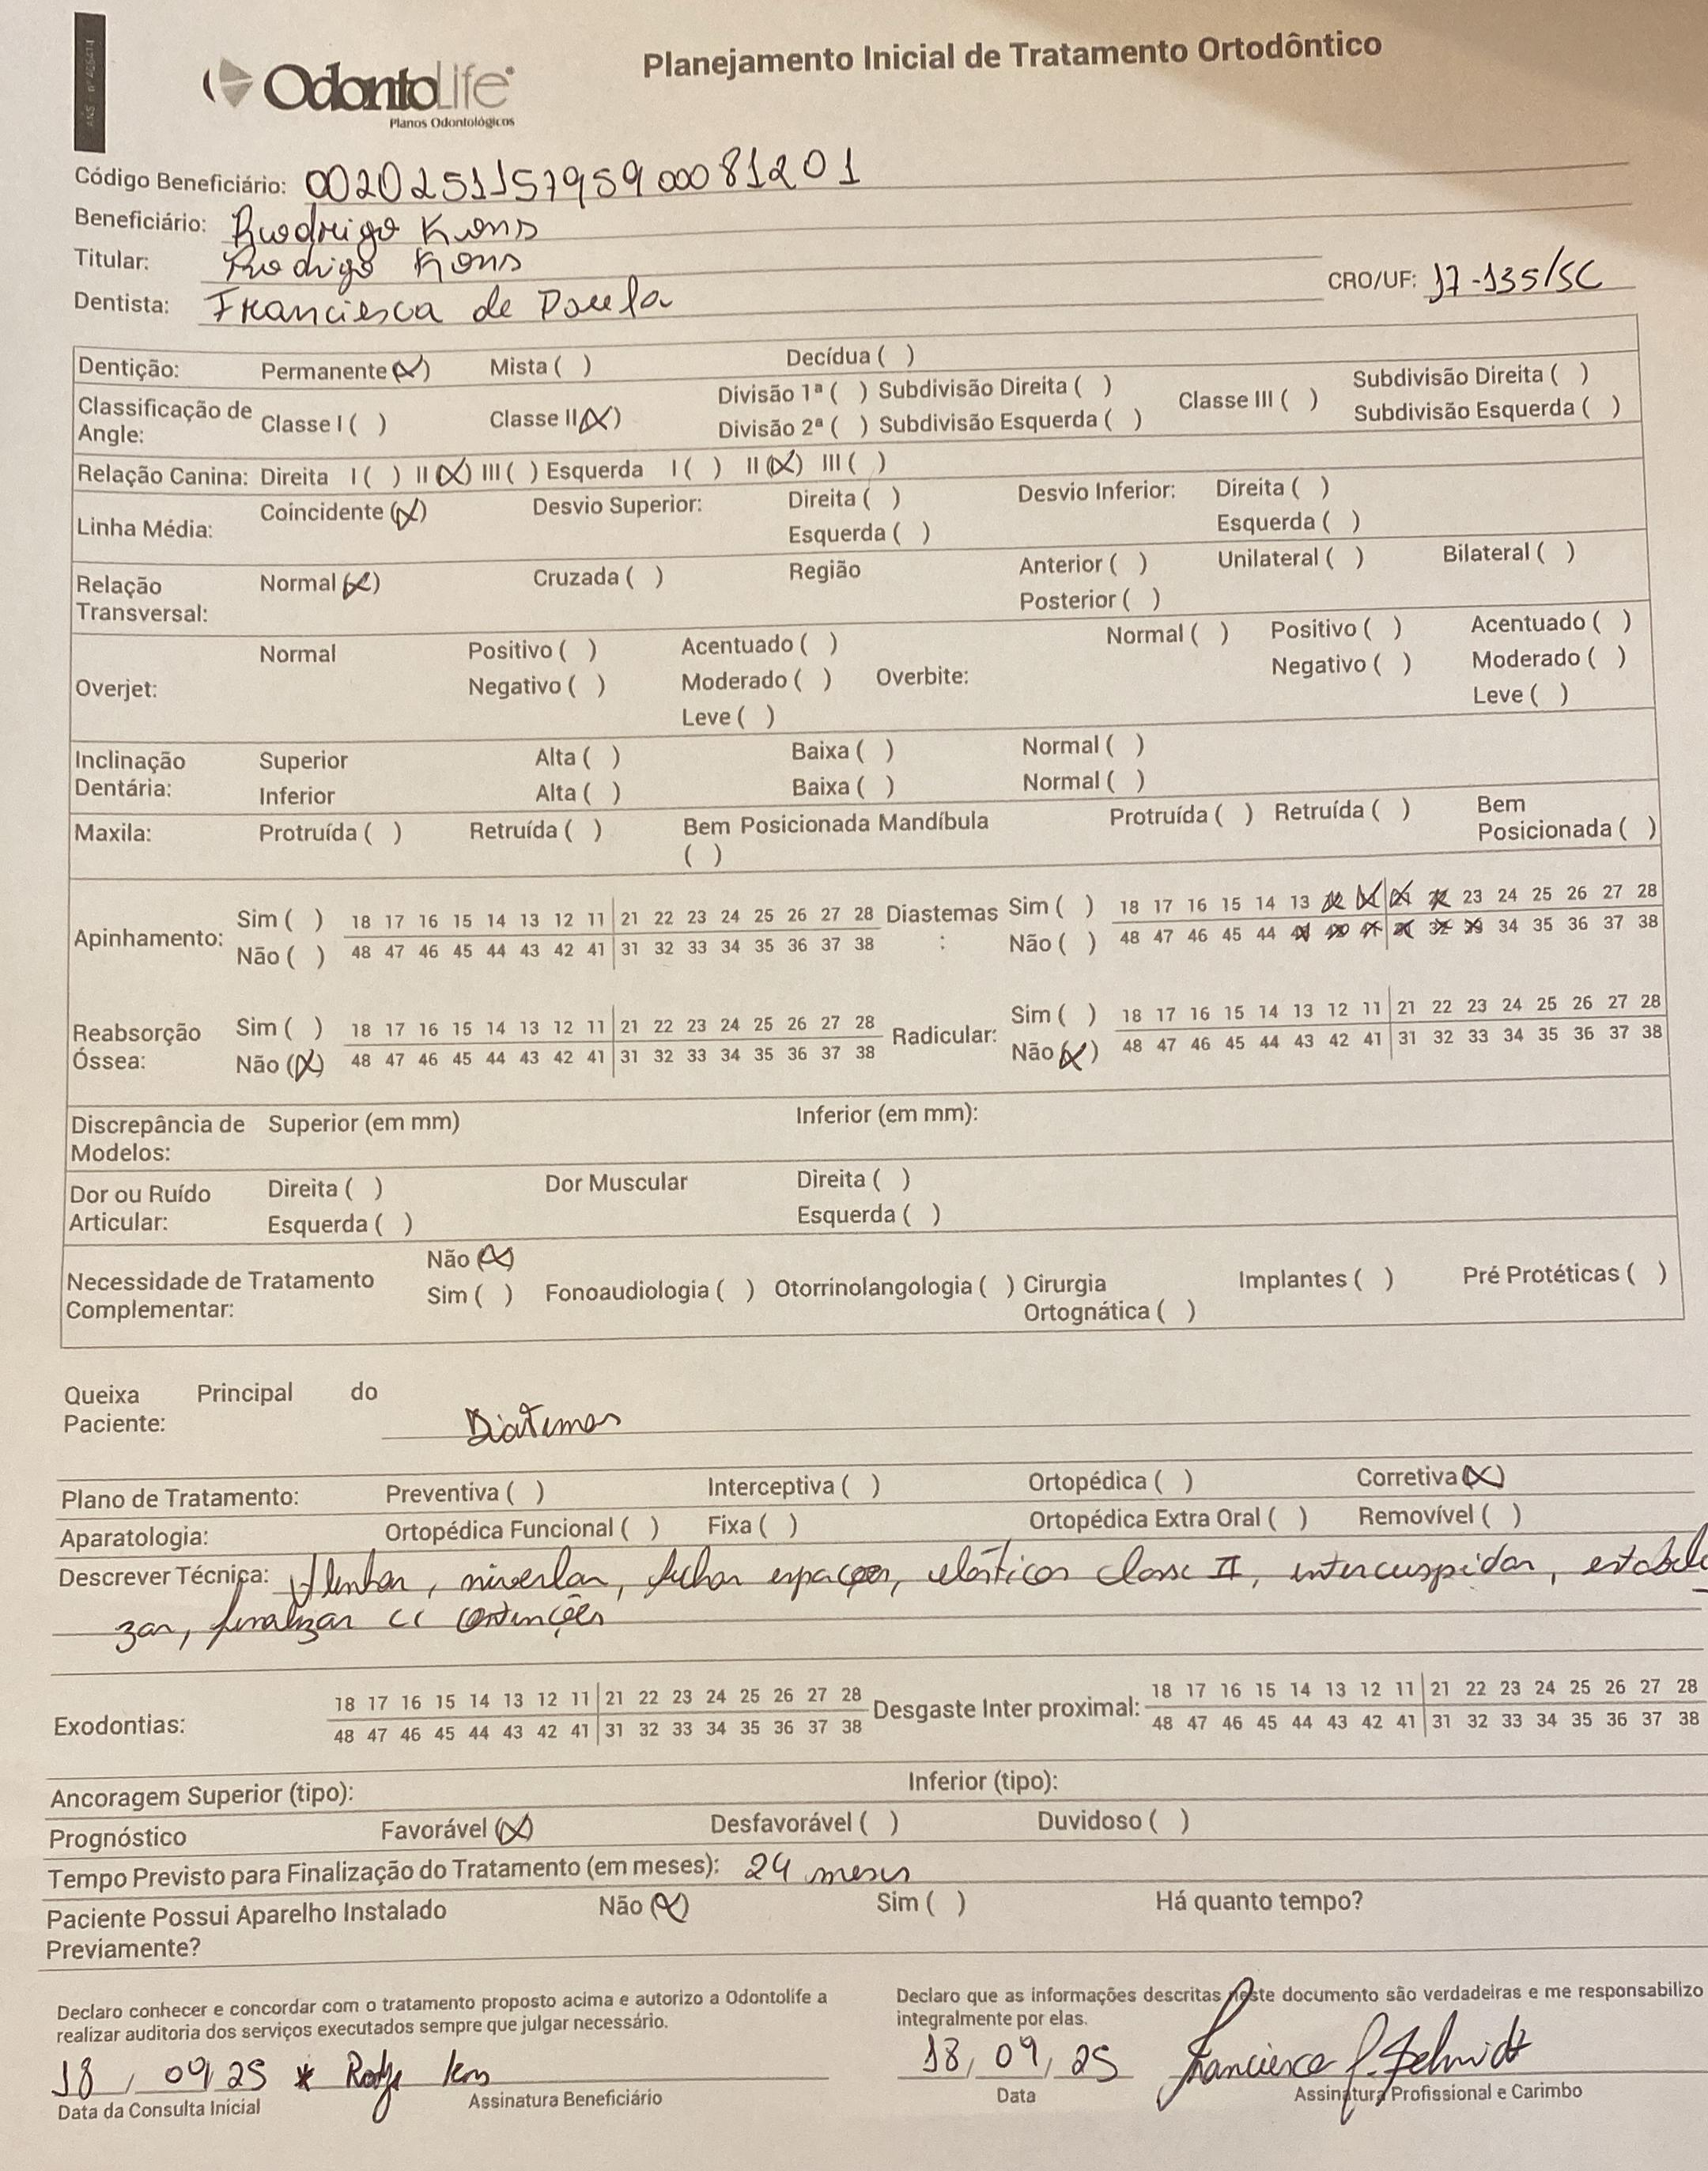 Planejamento Inicial de Tratamento Ortodôntico
OdontoLife
Planos Odontológicos
Código Beneficiário: 00202511579590008​1201
Beneficiário: Rodrigo Kons
Titular: Rodrigo Kons
Dentista: Franciesca de Paula CRO/UF: 17-135/SC
Dentição: Permanente (X) Mista ( ) Decídua ( )
Classificação de Angle: Classe I ( ) Classe II (X) Divisão 1ª ( ) Subdivisão Direita ( ) Classe III ( ) Subdivisão Direita ( )
Divisão 2ª ( ) Subdivisão Esquerda ( ) Subdivisão Esquerda ( )
Relação Canina: Direita I ( ) II (X) III ( ) Esquerda I ( ) II (X) III ( )
Linha Média: Coincidente (X) Desvio Superior: Direita ( ) Desvio Inferior: Direita ( )
Esquerda ( ) Esquerda ( )
Relação Transversal: Normal (X) Cruzada ( ) Região Anterior ( ) Unilateral ( ) Bilateral ( )
Posterior ( )
Overjet: Normal Positivo ( ) Acentuado ( ) Overbite: Normal ( ) Positivo ( ) Acentuado ( )
Negativo ( ) Moderado ( ) Negativo ( ) Moderado ( )
Leve ( ) Leve ( )
Inclinação Dentária: Superior Alta ( ) Baixa ( ) Normal ( )
Inferior Alta ( ) Baixa ( ) Normal ( )
Maxila: Protruída ( ) Retruída ( ) Bem Posicionada ( ) Mandíbula Protruída ( ) Retruída ( ) Bem Posicionada ( )
Apinhamento: Sim ( ) 18 17 16 15 14 13 12 11 21 22 23 24 25 26 27 28 Diastemas: Sim ( ) 18 17 16 15 14 13 12 11 21 22 23 24 25 26 27 28
Não ( ) 48 47 46 45 44 43 42 41 31 32 33 34 35 36 37 38 Não ( ) 48 47 46 45 44 43 42 41 31 32 33 34 35 36 37 38
Reabsorção Óssea: Sim ( ) 18 17 16 15 14 13 12 11 21 22 23 24 25 26 27 28 Radicular: Sim ( ) 18 17 16 15 14 13 12 11 21 22 23 24 25 26 27 28
Não (X) 48 47 46 45 44 43 42 41 31 32 33 34 35 36 37 38 Não (X) 48 47 46 45 44 43 42 41 31 32 33 34 35 36 37 38
Discrepância de Modelos: Superior (em mm) Inferior (em mm):
Dor ou Ruído Articular: Direita ( ) Dor Muscular Direita ( )
Esquerda ( ) Esquerda ( )
Necessidade de Tratamento Complementar: Não (X)
Sim ( ) Fonoaudiologia ( ) Otorrinolangologia ( ) Cirurgia Ortognática ( ) Implantes ( ) Pré Protéticas ( )
Queixa Principal do Paciente: Diatemas
Plano de Tratamento: Preventiva ( ) Interceptiva ( ) Ortopédica ( ) Corretiva (X)
Aparatologia: Ortopédica Funcional ( ) Fixa ( ) Ortopédica Extra Oral ( ) Removível ( )
Descrever Técnica: Alinhar, nivelar, fechar espaços, elásticos classe II, intercuspidar, estabili
zar, finalizar cc contenções
Exodontias: 18 17 16 15 14 13 12 11 21 22 23 24 25 26 27 28 Desgaste Inter proximal: 18 17 16 15 14 13 12 11 21 22 23 24 25 26 27 28
48 47 46 45 44 43 42 41 31 32 33 34 35 36 37 38 48 47 46 45 44 43 42 41 31 32 33 34 35 36 37 38
Ancoragem Superior (tipo): Inferior (tipo):
Prognóstico Favorável (X) Desfavorável ( ) Duvidoso ( )
Tempo Previsto para Finalização do Tratamento (em meses): 24 meses
Paciente Possui Aparelho Instalado Previamente? Não (X) Sim ( ) Há quanto tempo?
Declaro conhecer e concordar com o tratamento proposto acima e autorizo a Odontolife a
realizar auditoria dos serviços executados sempre que julgar necessário.
Declaro que as informações descritas neste documento são verdadeiras e me responsabilizo
integralmente por elas.
18, 09, 25 *
Data da Consulta Inicial Assinatura Beneficiário
18, 09, 25 Franciesca P. Schmidt
Data Assinatura Profissional e Carimbo